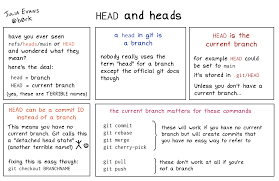 Julia Evans
@b0rk
HEAD and heads
have you ever seen
refs/heads/main or HEAD
and wondered what they
mean?
here's the deal:
head = branch
HEAD = current branch
(yes, these are TERRIBLE names)
a head in git is
a branch
nobody really uses the
term "head" for a branch
except the official git docs
though
HEAD is the
current branch
for example HEAD could
be set to main
it's stored in .git/HEAD
Unless you don't have a
current branch...
HEAD can be a commit ID
instead of a branch
This means you have no
current branch. Git calls this
a "detached head state"
(another terrible name)
fixing this is easy though:
git checkout BRANCHNAME
the current branch matters for these commands
git commit
git rebase
git merge
git cherry-pick
these will work if you have no current
branch but will create commits that
you have no easy way to refer to
git pull
git push
these don't work at all if you're
not on a branch